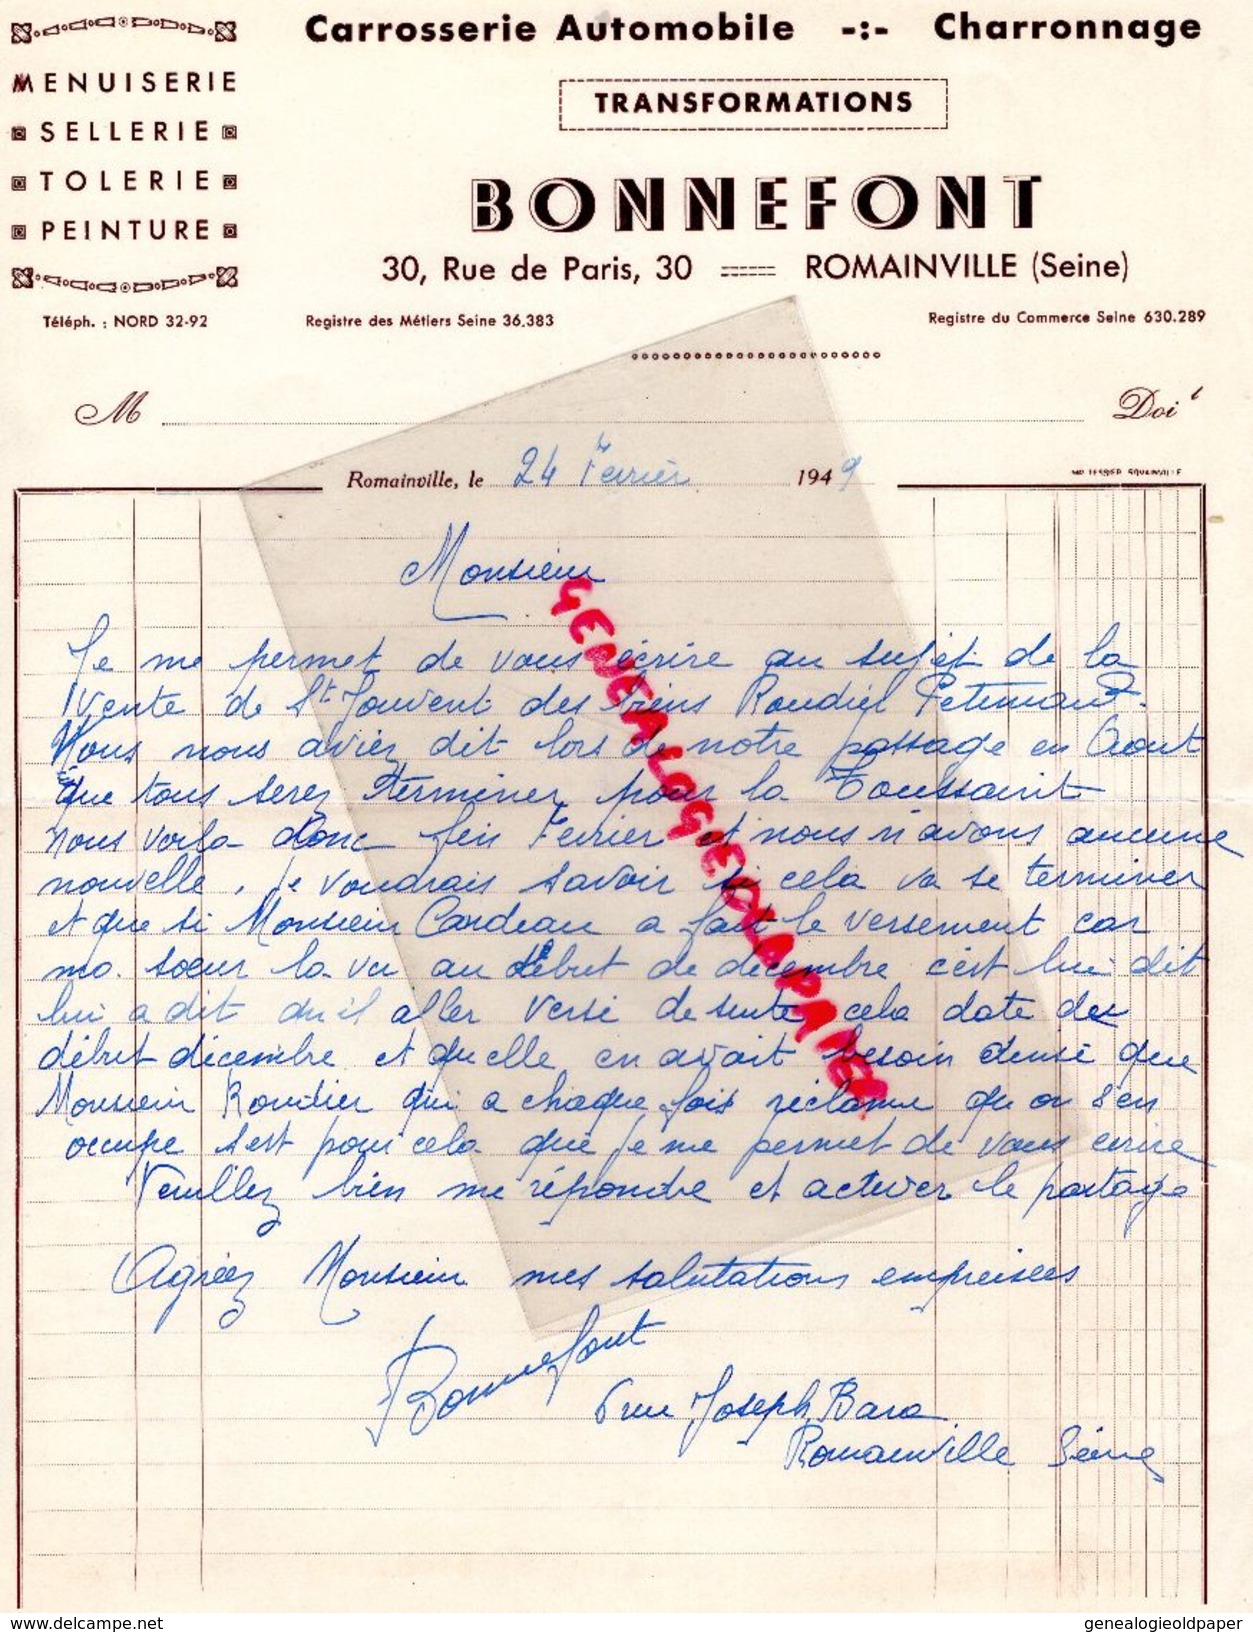 Carrosserie Automobile -:- Charronnage
MENUISERIE
SELLERIE
TOLERIE
PEINTURE
TRANSFORMATIONS
BONNEFONT
30, Rue de Paris, 30 ROMAINVILLE (Seine)
Téléph. : NORD 32-92 Registre des Métiers Seine 36.383 Registre du Commerce Seine 630.289
M Doit
Romainville, le 24 Fevrier 1949
IMP. TESSIER ROMAINVILLE
Monsieur
Je me permet de vous écrire au sujet de la
vente de St Jouvent des biens Roudiel Peteniaud.
Vous nous aviez dit lors de notre passage en Aout
que tous serez terminer pour la Toussaint
nous voila donc fin Fevrier et nous n'avons aucune
nouvelle, je voudrais savoir si cela va se terminer
et que si Monsieur Cardeau a fait le versement car
ma soeur la vu au début de decembre c'est lui dit
lui a dit qu'il aller versé de suite cela date des
début décembre et qu'elle en avait besoin ainsi que
Monsieur Roudier qui a chaque fois réclame qu on s'en
occupe s'est pour cela que je me permet de vous ecrire
Veuillez bien me répondre et activer le partage
Agréez Monsieur mes salutations empreisées
Bonnefont
6 rue Joseph Bara
Romainville Seine
GENEALOGIEOLDPAPER
www.delcampe.net genealogieoldpaper